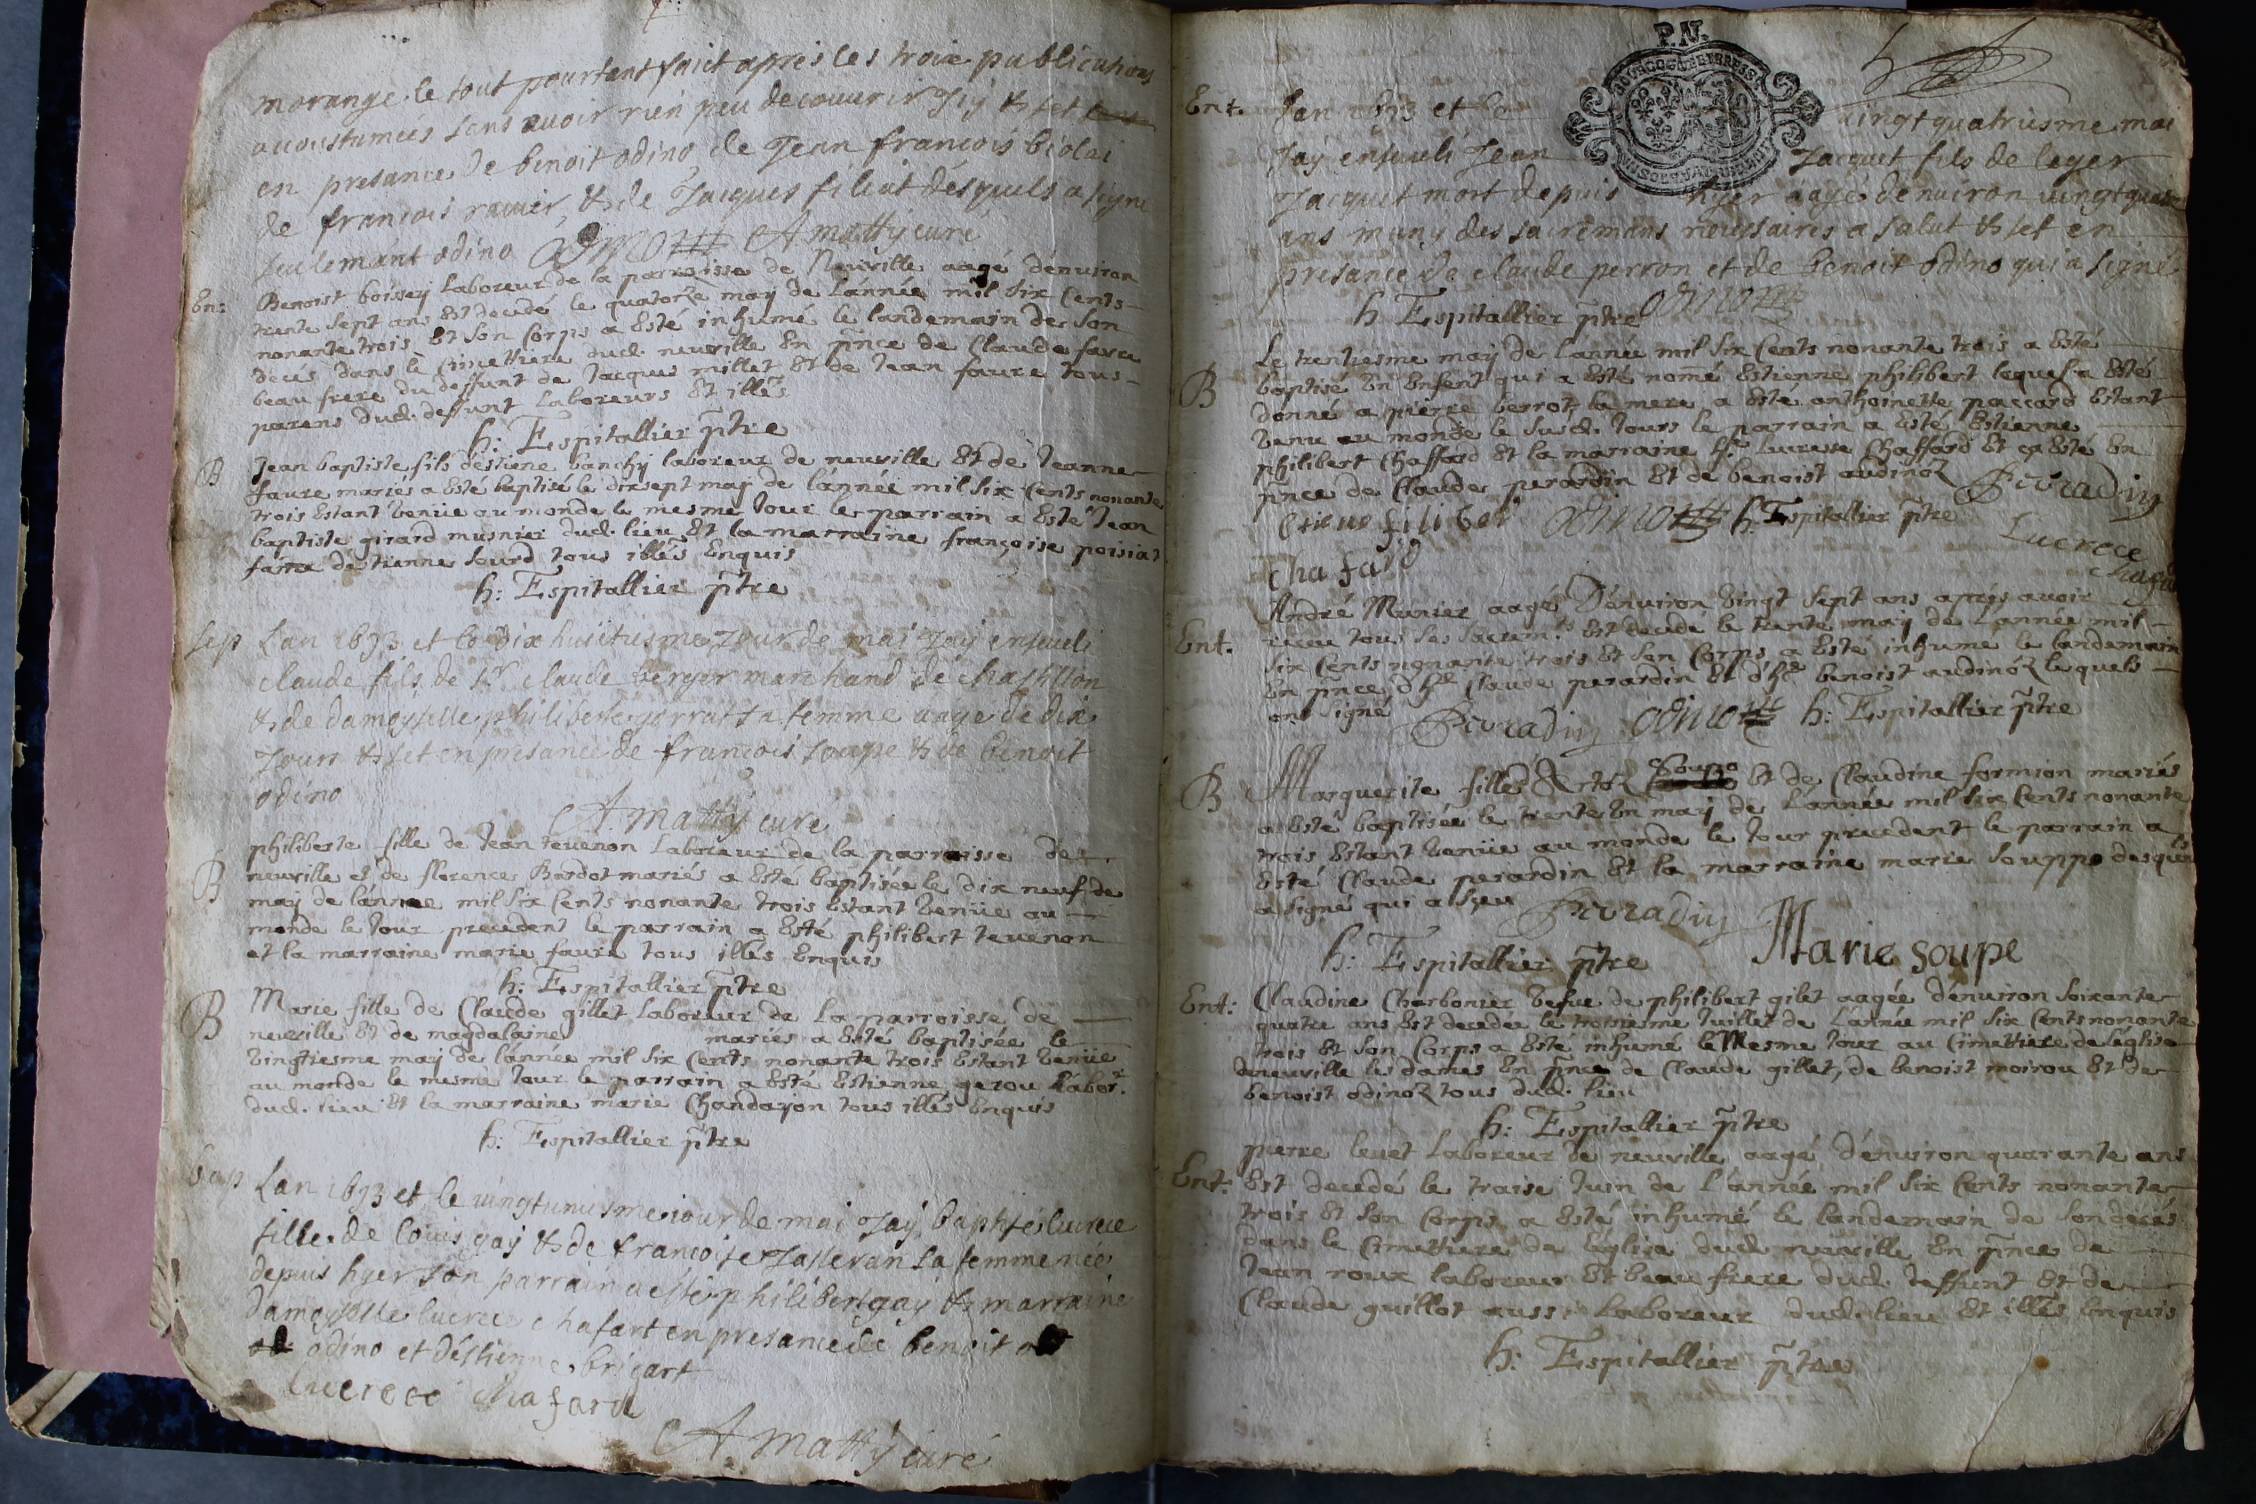 morange le tout pourtant faict apres les troix publications
avoustumées sans avoir rien peu decouurir Jcy & set
en presance de benoit odino de Jean francois biolai
de francois rauier, & de Jacques filiat desquels a signe
seulemant odino odinot A matty curé
En: Benoist boissey Laboreur de la parroisse de Neuville aagé d'enuiron
trente sept ans Est decedé le quatorze may de l'année mil six Cents
nonante trois Et son Corps a Esté inhumé le landemain de son
decés dans le Cimettiere dud. neuville En pnce de Claude farce
beau frere du deffunt de Jacques millet Et de Jean faure tous
parens dud. deffunt Laboreurs Et illés
h: Espitallier ptre
B Jean baptiste fils d'estiene banchy laboreur de neuville Et de Jeanne
faure mariés a Esté baptisé le dix sept may de l'année mil six Cents nonante
trois Estant Venüe au monde le mesme Jour le parrain a Esté Jean
baptiste girard musnier dud. lieu Et la marraine françoise poisiat
fame d'estienne sourd tous illés Enquis
h: Espitallier ptre
Sep Lan 1693 et le dix huiitiesme Jour de mai Jaÿ enseueli
claude fils de Sr. claude berger marchand de chastillon
& de damoyselle philiberte gorrat sa femme aage de dix
Jours & set en presance de francois soupe & de benoit
odino
A. matty curé
B philiberte fille de Jean teuenon Laboreur de la parroisse de
neuville et de florence Bardot mariés a Esté baptisée le dix neuf de
may de l'année mil six Cents nonante trois Estant Venüe au
monde le Jour precedent le parrain a Esté philibert teuenon
et la marraine marie faure tous illés Enquis
h: Espitallier ptre
B Marie fille de Claude gillet Laboreur de la parroisse de
neuville Et de magdalaine mariés a Esté baptisée le
Vingtiesme may de l'année mil six Cents nonante trois Estant Venüe
au monde le mesme Jour le parrain a Esté Estienne gerou labor.
dud. lieu Et la marraine marie Chandayon tous illés Enquis
h: Espitallier ptre
bap Lan 1693 et le vingtuniesme iour de mai Jaÿ baptisé lucrece
fille de louis gay & de francoise Jasseran sa femme née
depuis hyer son parrain a esté philibert gay & marraine
damoyselle lucrece chafart en presance de benoit
odino et d'estienne brigart
lucrece chafard
A. matty curé
P.N.
Ent. Lan 1693 et le vingt quatriesme mai
Jaÿ enseueli Jean Jacquet fils de leger
Jacquet mort depuis hyer aagé denuiron vingt quatre
ans muny des sacremans necessaires a salut & set en
presance de claude perron et de benoit odino qui a signé
h Espitallier ptre odinot
Le trentiesme may de l'année mil six Cents nonante trois a Esté
B baptisé Un Enfent qui a Esté nomé Estienne philibert lequel a Esté
donné a pierre berrot, la mere a Esté anthoinette paccard Estant
Venu au monde le susd. Jours le parrain a Esté Estienne
philibert Chaffard Et la marraine lucresse Chaffard Et ça Esté En
pnce de Claude perardin Et de benoist audinot Perradin
Etiene filiber odinot h. Espitallier ptre
Lucrece
Chafard
André Munier aagé D'enuiron Vingt sept ans aprés avoir
Ent. receu tous ses sacremts. Est decedé le trente may de l'année mil
six Cents nonante trois Et son Corps a Esté inhumé le landemain
En pnce d'he Claude perardin Et d'he benoist audinot lequels
ont signé Perradin odinot h: Espitallier ptre
B Marguerite fille soupe Et de Claudine formion mariés
a Esté baptisée le trente Un may de l'année mil six Cents nonante
trois Estant Venüe au monde le Jour precedent le parrain a
Esté Claude perardin Et la marraine marie souppe desquels
a signé qui a sçeu Perradin Marie soupe
h: Espitallier ptre
Ent: Claudine Charbonier Vefue de philibert gilet aagée d'enuiron soixante
quatre ans Est decedée le troisiesme Juillet de l'année mil six Cents nonante
trois Et son Corps a Esté inhumé le Mesme Jour au Cimettiere de l'église
de neuville les dames En pnce de Claude gillet, de benoist moirou Et de
benoist odinot tous dud. lieu
h: Espitallier ptre
pierre leuet Laboreur de neuville aagé d'enuiron quarante ans
Ent: Est decedé le traise Juin de l'année mil six Cents nonante
trois Et son Corps a Esté inhumé le landemain de son decés
dans le Cimettiere de l'église dud. neuville En pnce de
Jean roux laboreur Et beau frere dud. deffunt Et de
Claude guillot aussi Laboreur dud. lieu Et illés Enquis
h: Espitallier ptre